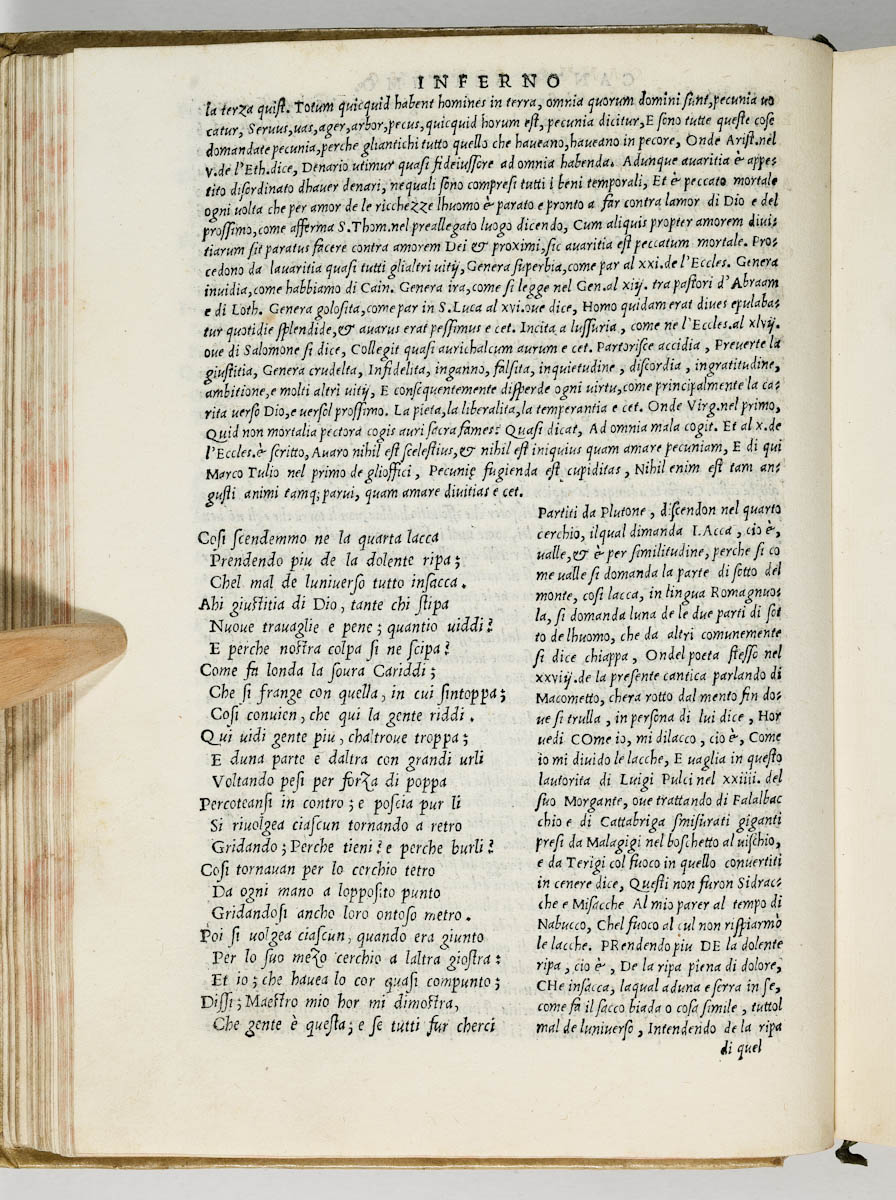 INFERNO
la terza quist. Totum quicquid habent homines in terra, omnia quorum domini sunt, pecunia uo
catur, Seruus, uas, ager, arbor, pecus, quicquid horum est, pecunia dicitur, E sono tutte queste cose
domandate pecunia, perche gliantichi tutto quello che haueano, haueano in pecore, Onde Arist. nel
V. de l'Eth. dice, Denario utimur quasi fideiussore ad omnia habenda. Adunque auaritia è appe-
tito disordinato dhauer denari, nequali sono compresi tutti i beni temporali, Et è peccato mortale
ogni uolta che per amor de le ricchezze lhuomo è parato e pronto a far contra lamor di Dio e del
prossimo, come afferma S. Thom. nel preallegato luogo dicendo, Cum aliquis propter amorem diui-
tiarum sit paratus facere contra amorem Dei & proximi, sic auaritia est peccatum mortale. Pro-
cedono da lauaritia quasi tutti glialtri uitij, Genera superbia, come par al xxi. de l'Eccles. Genera
inuidia, come habbiamo di Cain. Genera ira, come si legge nel Gen. al xiij. tra pastori d'Abraam
e di Loth. Genera golosita, come par in S. Luca al xvi. oue dice, Homo quidam erat diues epulaba-
tur quotidie splendide, & auarus erat pessimus e cet. Incita a lussuria, come ne l'Eccles. al xlvij.
oue di Salomone si dice, Collegit quasi aurichalcum aurum e cet. Partorisce accidia, Preuerte la
giustitia, Genera crudelta, Infidelita, inganno, falsita, inquietudine, discordia, ingratitudine,
ambitione, e molti altri uitij, E consequentemente disperde ogni uirtu, come principalmente la ca-
rita uerso Dio, e uersol prossimo. La pieta, la liberalita, la temperantia e cet. Onde Virg. nel primo,
Quid non mortalia pectora cogis auri sacra fames? Quasi dicat, Ad omnia mala cogit. Et al x. de
l'Eccles. è scritto, Auaro nihil est scelestius, & nihil est iniquius quam amare pecuniam, E di qui
Marco Tulio nel primo de glioffici, Pecunię fugienda est cupiditas, Nihil enim est tam an-
gusti animi tamq; parui, quam amare diuitias e cet.
Cosi scendemmo ne la quarta lacca
Prendendo piu de la dolente ripa;
Chel mal de luniuerso tutto insacca.
Ahi giustitia di Dio, tante chi stipa
Nuoue trauaglie e pene; quantio uiddi?
E perche nostra colpa si ne scipa?
Come fa londa la soura Cariddi;
Che si frange con quella, in cui sintoppa;
Cosi conuien, che qui la gente riddi.
Qui uidi gente piu, chaltroue troppa;
E duna parte e daltra con grandi urli
Voltando pesi per forza di poppa
Percoteansi in contro; e poscia pur li
Si riuolgea ciascun tornando a retro
Gridando; Perche tieni? e perche burli?
Cosi tornauan per lo cerchio tetro
Da ogni mano a lopposito punto
Gridandosi ancho loro ontoso metro.
Poi si uolgea ciascun, quando era giunto
Per lo suo mezo cerchio a laltra giostra:
Et io; che hauea lo cor quasi compunto;
Dissi; Maestro mio hor mi dimostra,
Che gente è questa; e se tutti fur cherci
Partiti da Plutone, discendon nel quarto
cerchio, ilqual dimanda LAcca, cio è,
ualle, & è per similitudine, perche si co
me ualle si domanda la parte di sotto del
monte, cosi lacca, in lingua Romagnuo-
la, si domanda luna de le due parti di sot
to de lhuomo, che da altri comunemente
si dice chiappa, Ondel poeta stesso nel
xxviij. de la presente cantica parlando di
Macometto, chera rotto dal mento fin do-
ue si trulla, in persona di lui dice, Hor
uedi COme io, mi dilacco, cio è, Come
io mi diuido le lacche, E uaglia in questo
lautorita di Luigi Pulci nel xxiiii. del
suo Morgante, oue trattando di Falalbac
chio e di Cattabriga smisurati giganti
presi da Malagigi nel boschetto al uischio,
e da Terigi col fuoco in quello conuertiti
in cenere dice, Questi non furon Sidrac-
che e Misacche Al mio parer al tempo di
Nabucco, Chel fuoco al cul non rispiarmò
le lacche. PRendendo piu DE la dolente
ripa, cio è, De la ripa piena di dolore,
CHe insacca, laqual aduna e serra in se,
come fa il sacco biada o cosa simile, tuttol
mal de luniuerso, Intendendo de la ripa
di quel